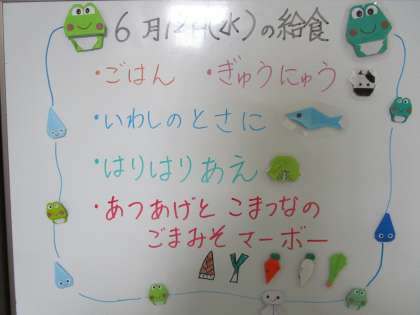 6月12日(水)の給食
・ごはん ・ぎゅうにゅう
・いわしのとさに
・はりはりあえ
・あつあげと こまつなの
ごまみそマーボー